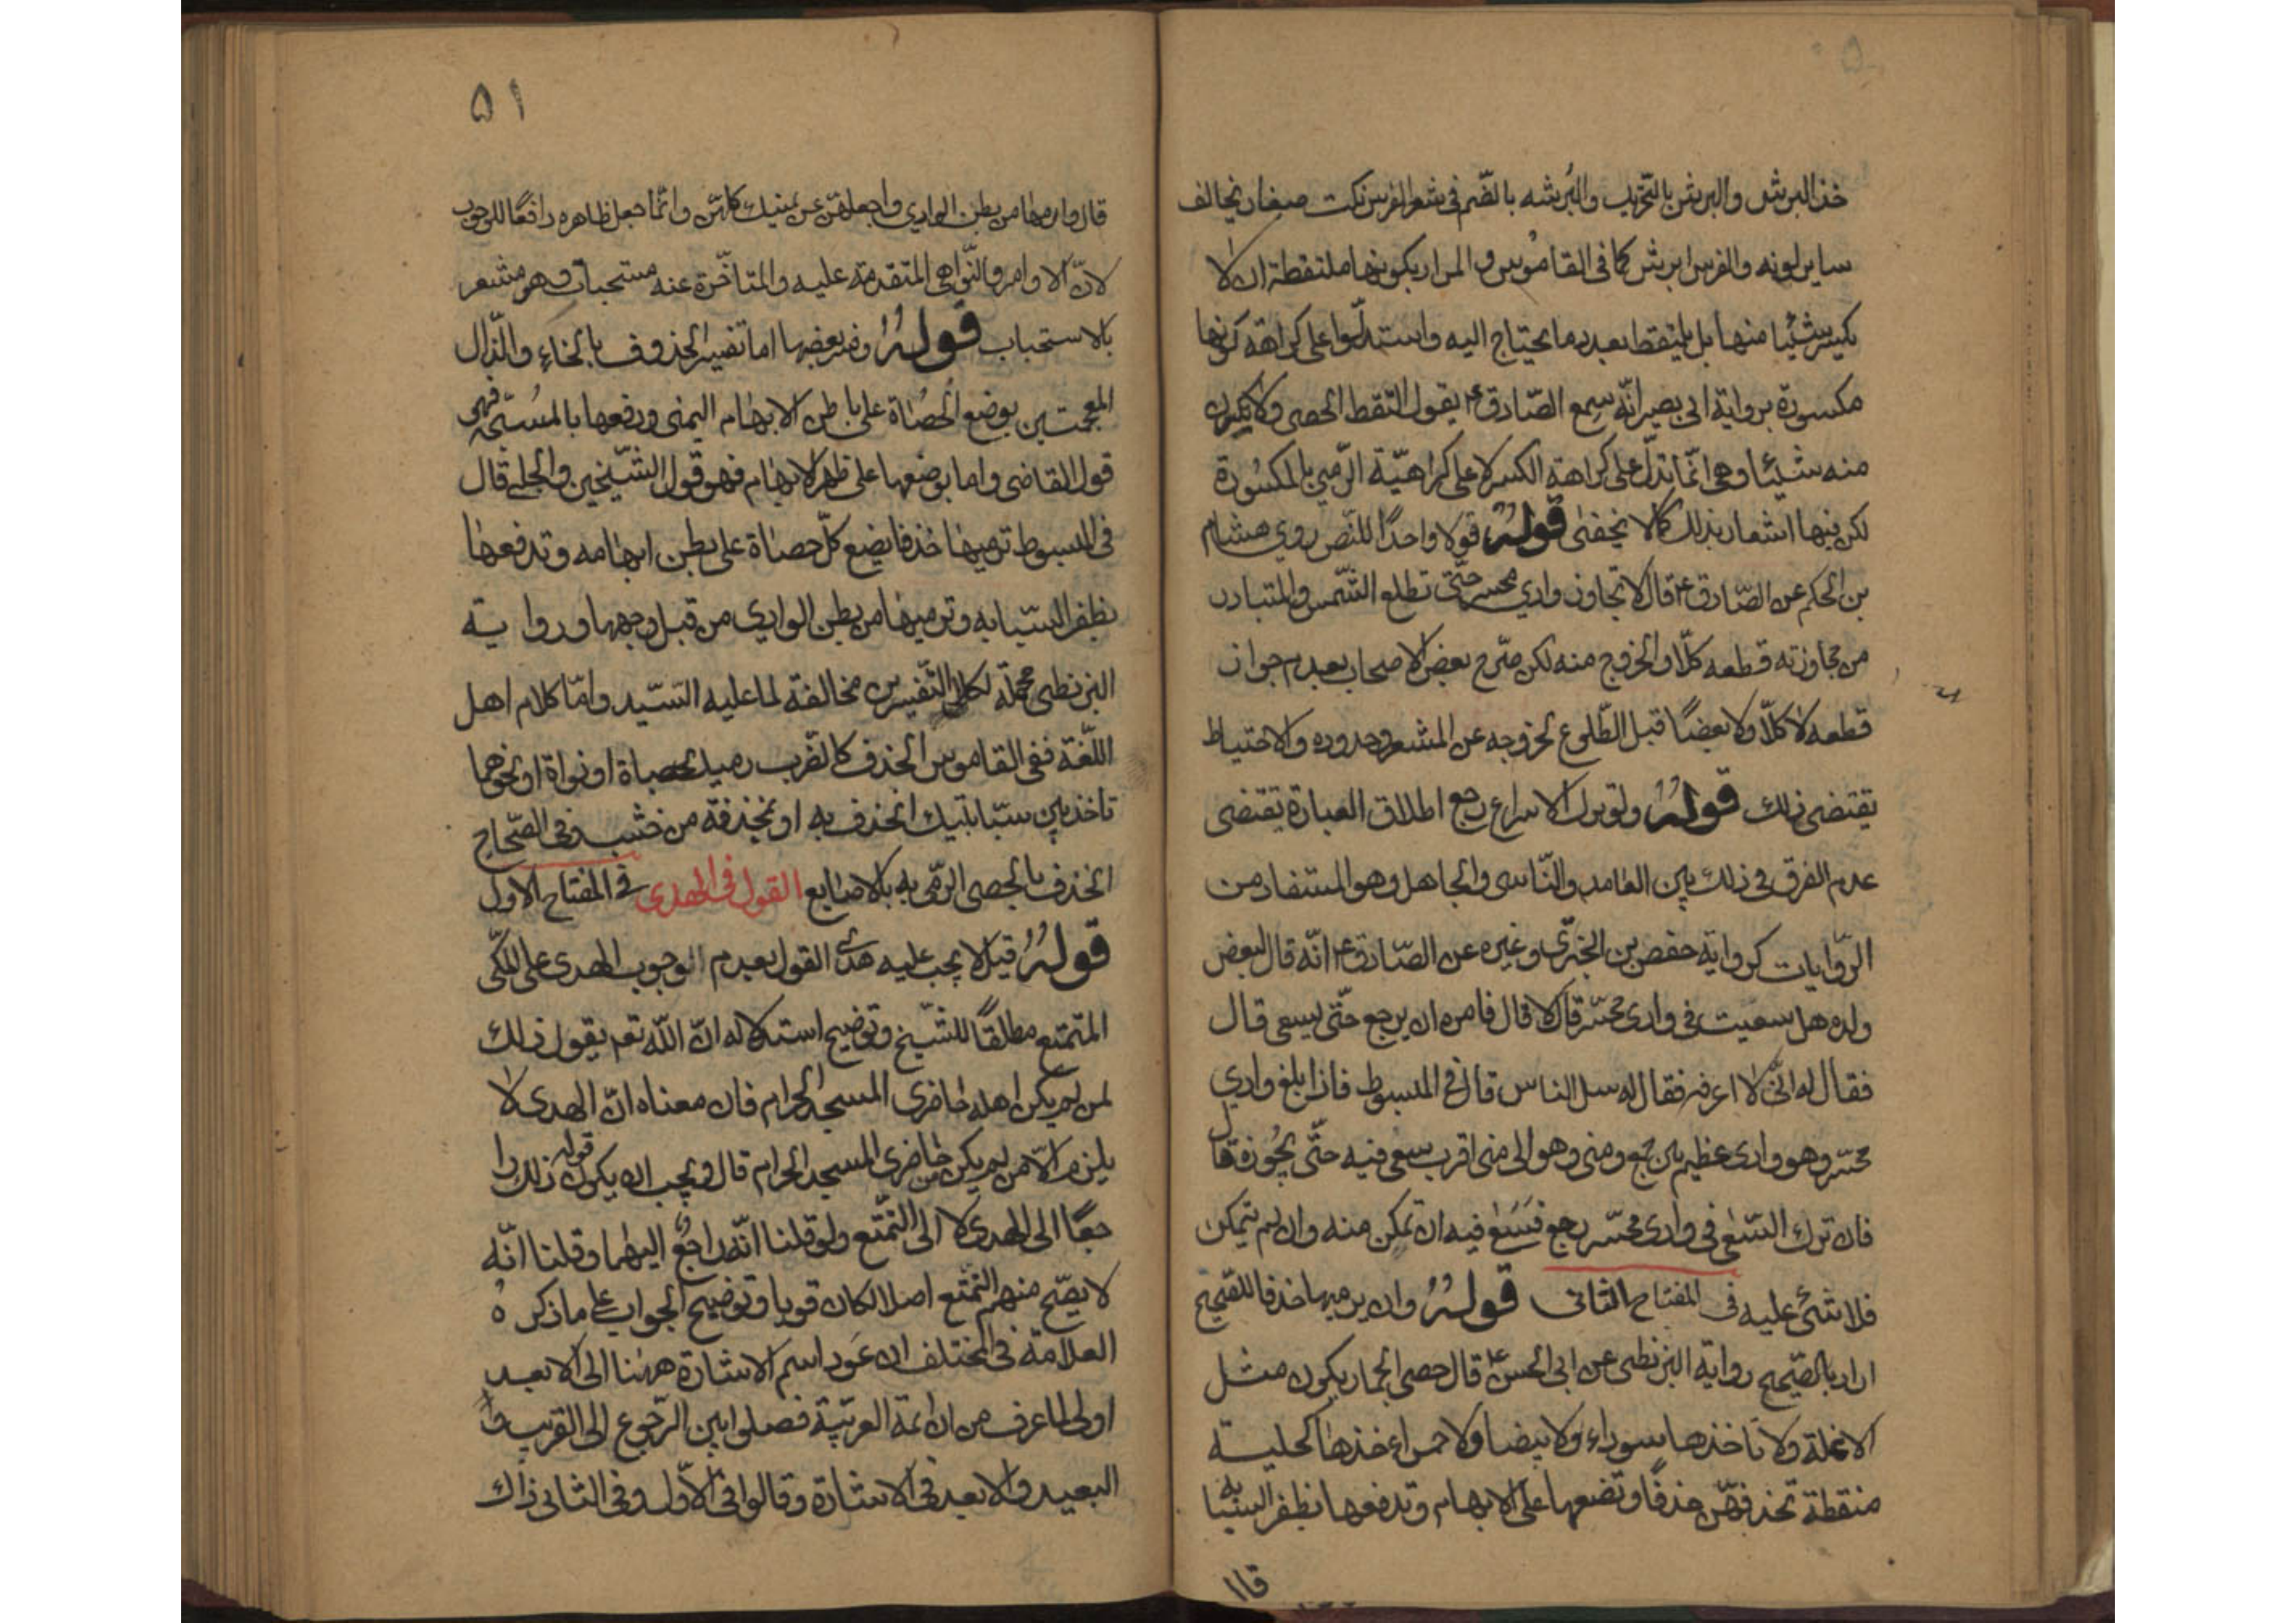 خذ البرش والبرش بالتحريك والبُرشه بالضّم فى شعر الفرس نكت صغار يخالف
ساير لونه والفرس ابرش كما فى القاموس و المراد بكونها ملتقطة ان لا
يكسر شيئا منها بل يلتقط بعدد ما يحتاج اليه واستدلّوا على كراهة كونها
مكسورة برواية ابى بصير انّه سمع الصّادق ع يقول التقط الحصى ولا تكسرن
منه شيئا وهى انّما تدلّ على كراهة الكسر لا على كراهيّة الرّمي بالمكسُورة
لكن فيها اشعار بذلك كما لا يخفى قولهُ قولا واحدًا للنّص روي هشام
بن الحكم عن الصّادق ع قال لا تجاوز وادي محسر حتّى تطلع الشّمس والمتبادر
من مجاوزته قطعه كلّا والخروج منه لكن صرّح بعض الاصحاب بعدم جواز
قطعه لا كلّا ولا بعضًا قبل الطّلوع لخروجه عن المشعر وحدوده والاحتياط
يقتضى ذلك قولهُ ولو ترك الاسراع رجع اطلاق العبارة يقتضى
عدم الفرق فى ذلك بين العامد والنّاسى والجاهل وهو المستفاد من
الرّوايات كرواية حفص بن البخترّى وغيره عن الصّادق ع انّه قال لبعض
ولده هل سعيت فى وادى محسّر قال لا قال فامره ان يرجع حتّى يسعى قال
فقال له انّى لا اعرفه فقال له سل الناس قال فى المبسوط فاذا بلغ وادي
محسّر وهو وادى عظيم بين جمع ومنى وهو الى منى اقرب سعى فيه حتّى يجُوزه قال
فان ترك السّعى فى وادى محسّر رجع فيَسَعى فيه ان تمكن منه وان لم يتمكن
فلا شئ عليه فى المفتاح الثانى قولهُ وان يرميها خذفا للصّحيح
اراد بالصّحيح رواية البزنطى عن ابى الحسن ع قال حصى الجمار يكون مثل
الانملة ولا تاخذها سوداء ولا بيضا ولا حمراء خذها كحلية
منقطة تخذفهّن خذفًا وتضعها على الابهام وتدفعها بظفر السبابه
قال
٥١
قال وارمها من بطن الوادي واجعلهّن عن يمينك كلهّن وانّما جعل ظاهره دافعًا للوجوب
لانّ الاوامر والنّواهى المتقدمة عليه والمتاخّرة عنه مستحبات وهو مشعر
بالاستحباب قولهُ وفسر بعضها اما تفسير الخذوف بالخاء والذّال
المعجمتين بوضع الحُصاة على باطن الابهام اليمنى ودفعها بالمسبّحة فهى
قول القاضى واما بوضعها على ظهر الابهام فهو قول الشّيخين والحلى قال
فى المبسوط ترميها خذفا يضع كلّ حصاة على بطن ابهامه وتدفعها
بظفر السّبابه وترميها من بطن الوادى من قبل وجهها ورواية
البزنطى محملّة لكلى التّفسيرين مخالفة لما عليه السّيد وامّا كلام اهل
اللّغة ففى القاموس الخذف كالضّرب رميك بحصاة او نواة او نحوهما
تاخذ بين سبّابتيك تخذف به او بمخذفة من خشب وفى الصّحاح
الخذف بالحصى الرمّى به بالاصابع القول فى الهدى فى المفتاح الاول
قولهُ قيل لا يجب عليه هدى القول بعدم الوجوب الهدى على المكّى
المتمتع مطلقًا للشّيخ وتوضيح استدلاله انّ اللّه تعم يقول ذلك
لمن لم يكن اهله حاضرى المسجد الحرام فان معناه انّ الهدى لا
يلزم الّا من لم يكن من حاضرى المسجد الحرام قال ويجب ان يكون قوله ذلك را
جعًا الى الهدى لا الى التّمتّع ولو قلنا انّه راجعٌ اليهما وقلنا انّه
لا يصّح منهم التّمتع اصلا لكان قويا وتوضيح الجواب على ما ذكره
العلامة فى المختلف ان عَود اسم الاشارة ههنا الى الابعد
اولى لما عرف من ان ائمة العربيّة فصلوا بين الرّجوع الى القريب وا
البعيد والابعد فى الاشارة وقالوا فى الاوّل وفى الثانى ذاك